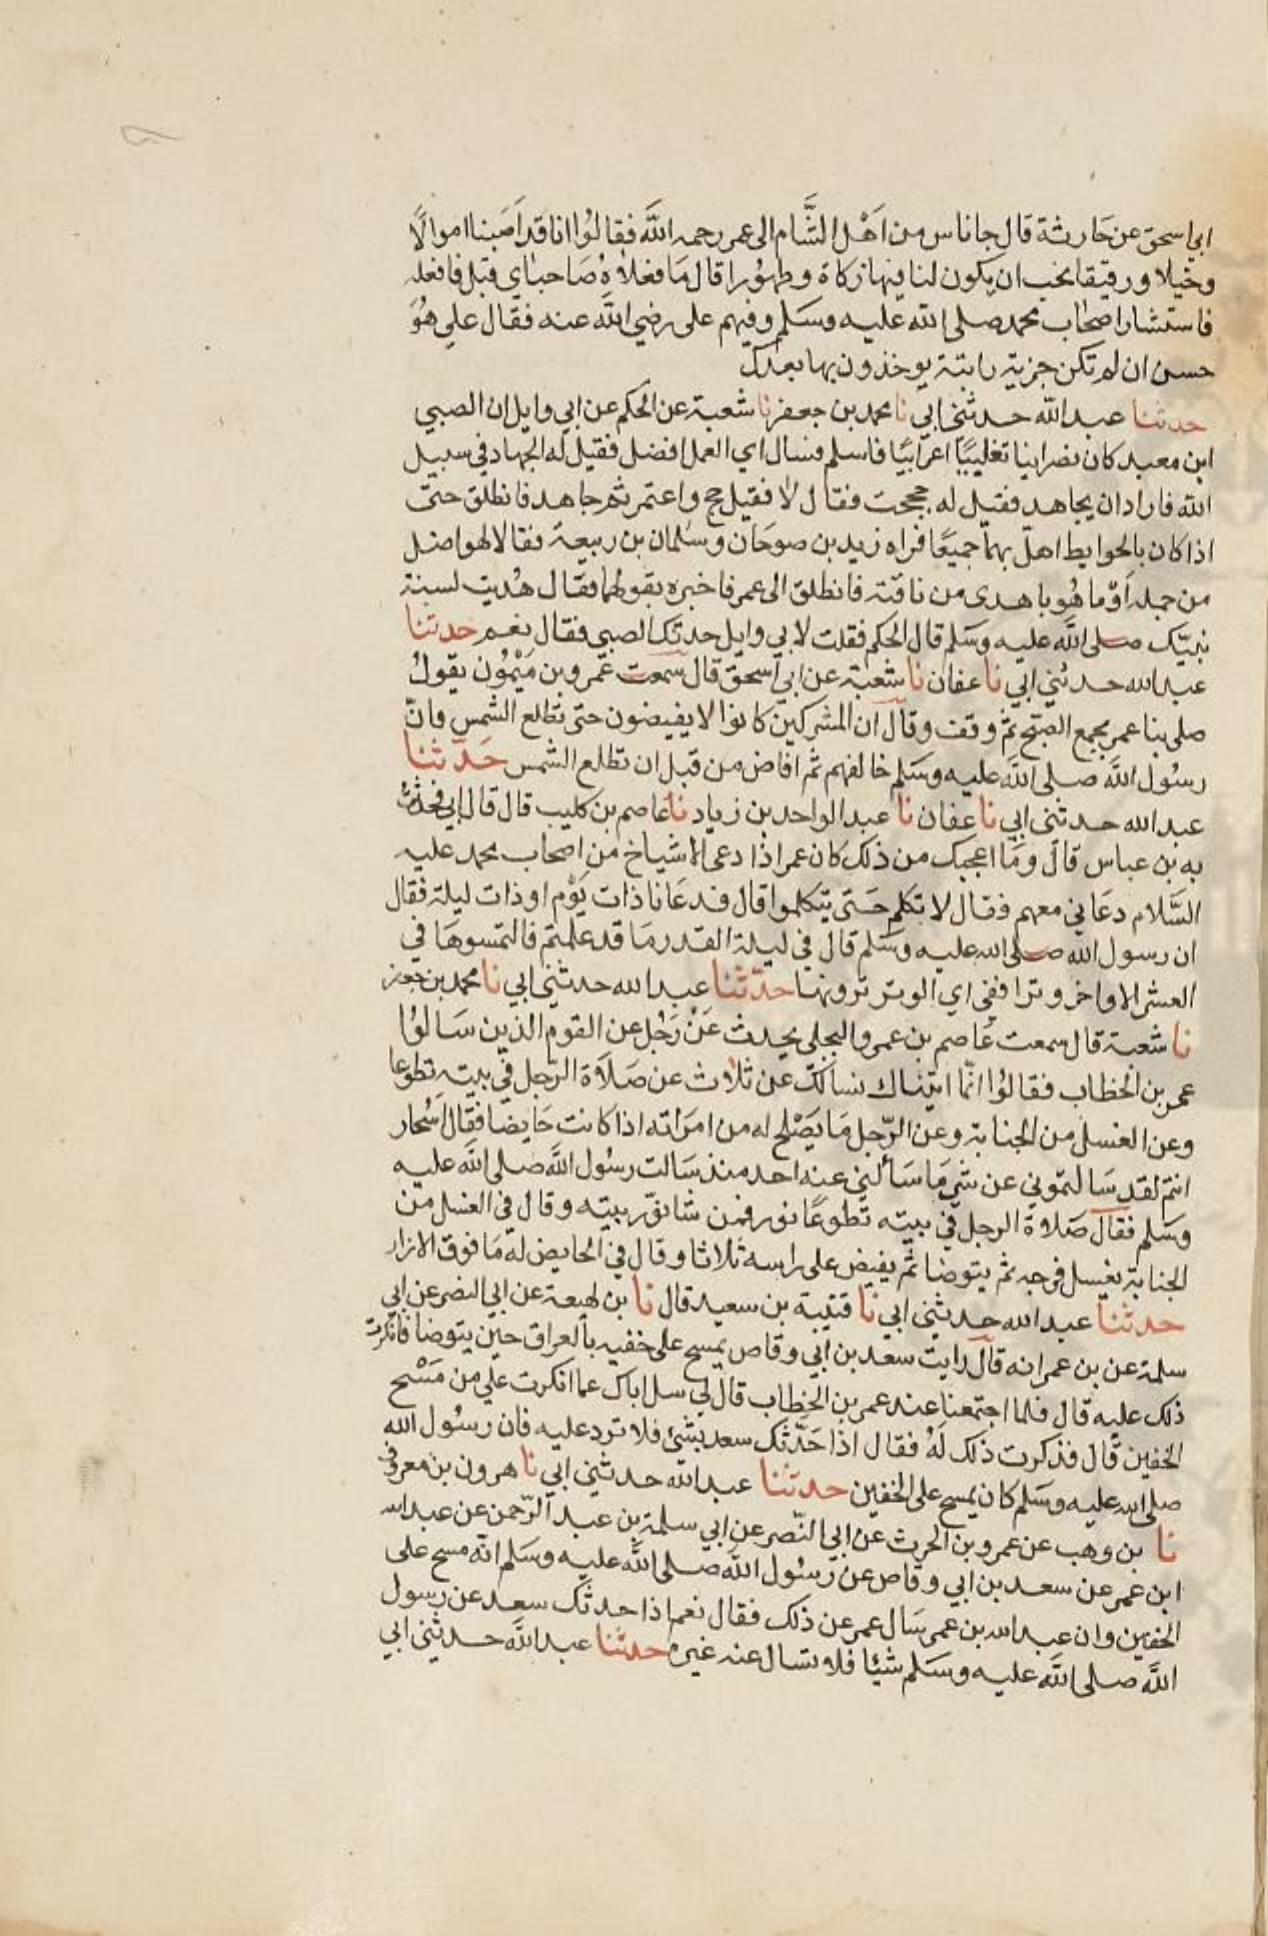 ابي اسحق عن حَارثة قال جا ناس من اَهْل الشَّام الى عمر رحمه اللَّه فقالوُا انا قد اَصَبنا اموالًا
وخيلا ورقيقا نحب ان يكون لنا فيها زكاة وطهُورا قال مَا فعلاهُ صَاحباي قبلي فافعله
فاستشار اصحاب محمد صلى الله عليه وسَلم وفيهم على رضي اللَّه عنه فقال علي هُوَ
حسن ان لم تكن جزية راتبة يوخذون بها بعدك
حدثنا عبد اللَّه حدثني ابي نا محمد بن جعفر نا شعبة عن الحكم عن ابي وايل ان الصبي
ابن معبد كان نصرانيا تغلبيًا اعرابيًا فاسلم فسال اي العمل افضل فقيل له الجهاد في سبيل
الله فاراد ان يجاهد فقيل له حججت فقال لا فقيل حج واعتمر ثم جاهد فانطلق حتى
اذا كان بالحوايط اهلّ بهما جميعًا فراه زيد بن صوحَان وسَلمان بن ربيعة فقالا لهو اضل
من جمله اَوْ ما هُو باهدى من ناقته فانطلق الى عمر فاخبره بقولهما فقال هُديت لسنة
نبيّك صلى اللَّه عليه وسَلم قال الحكم فقلت لابي وايل حدثك الصبي فقال نعم حدثنا
عبد الله حدثني ابي نا عفان نا شعبة عن ابي اسحق قال سمعت عَمرو بن مَيْمُون يقولُ
صلى بنا عمر بجمع الصبح ثمّ وقف وقال ان المشركين كانوا لا يفيضون حتى تطلع الشمس وانّ
رسُول اللَّه صلى اللَّه عليه وسَلم خالفهم ثم افاض من قبل ان تطلع الشمس حَدّثنا
عبد الله حدثني ابي نا عفان نا عبد الواحد بن زياد نا عاصم بن كليب قال قال ابي فحدثت
به بن عباس قال ومَا اعجبك من ذلك كان عمر اذا دعى الاشياخ من اصحاب محمد عليه
السَّلام دعَاني معهم فقال لا تكلم حَتى يتكلموا قال فدعَانا ذات يَوْم او ذات ليلة فقال
ان رسول الله صلى الله عليه وسَلم قال في ليلة القدر مَا قد علمتم فالتمسوهَا في
العشر الاواخر وترا ففي اي الوتر ترونها حدّثنا عبد الله حدثني ابي نا محمد بن جعفر
نا شعبة قال سمعت عَاصم بن عمرو البجلي يحدث عَنْ رَجُل عن القوم الذين سَالوُا
عمر بن الخطاب فقالوُا انّما اتيناك نسالك عن ثلاث عن صَلاَة الرّجل في بيته تطوعا
وعن الغسل من الجنابة وعن الرّجل مَا يَصْلح له من امرَاته اذا كانت حَايضا فقال اَسُحار
انتم لقد سَالتموني عن شي مَا سَألني عنه احد منذ سَالت رسُول اللَّه صَلى اللَّه عليه
وسَلم فقال صَلاة الرجل في بيته تطوعًا نور فمن شا نوّر بيته وقال في الغسل من
الجنابة يغسل فرجه ثم يتوضا ثم يفيض على راسه ثلاثا وقال في الحايض له مَا فوق الازار
حدثنا عبد الله حدثني ابي نا قتيبة بن سعيد قال نا بن لهيعة عن ابي النضر عن ابي
سلمة عن بن عمر انه قال رايت سعد بن ابي وقاص يمسح على خفيه بالعراق حين يتوضا فانكرت
ذلك عليه قال فلما اجتمعنا عند عمر بن الخطاب قال لي سل اباك عما انكرت عليّ من مَسْح
الخفين قال فذكرت ذلك لَهُ فقال اذا حَدّثك سعد بشئ فلا ترد عليه فان رسُول الله
صلى الله عليه وسَلم كان يمسح على الخفين حدثنا عبد اللَّه حدثني ابي نا هرون بن معروف
نا بن وهب عن عمرو بن الحرث عن ابي النّضر عن ابي سلمة بن عبد الرّحمن عن عبد الله
ابن عمر عن سعد بن ابي وقاص عن رَسُول اللَّه صلى اللَّه عليه وسَلم انّه مسح على
الخفين وان عبد الله بن عمر سَال عمر عن ذلك فقال نعم اذا حدثك سعد عن رسول
اللَّه صلى اللَّه عليه وسَلم شيْئا فلا تسال عنه غيره حدثنا عبد اللَّه حدثني ابي